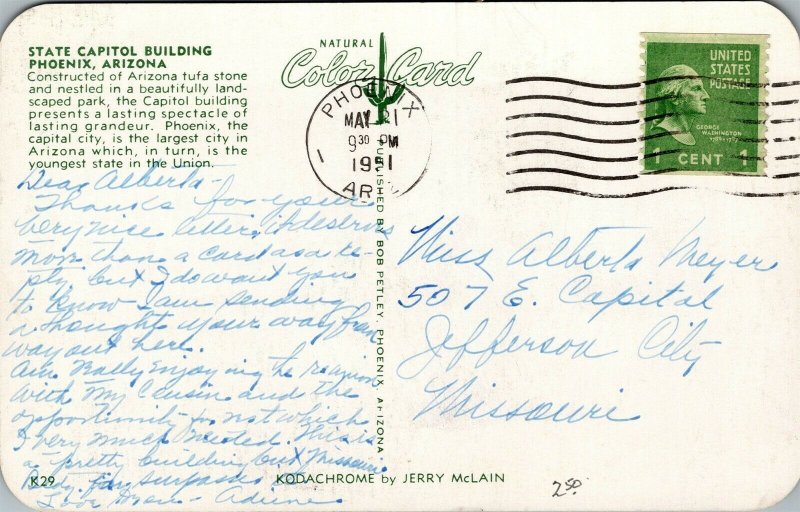 STATE CAPITOL BUILDING
PHOENIX, ARIZONA
Constructed of Arizona tufa stone
and nestled in a beautifully land-
scaped park, the Capitol building
presents a lasting spectacle of
lasting grandeur. Phoenix, the
capital city, is the largest city in
Arizona which, in turn, is the
youngest state in the Union.
Dear Alberta-
Thanks for your
very nice letter, it destroys
more than a card as a re-
ply, but I do want you
to know I am sending
a thought your way from
way out here.
Am really enjoying the reunion
with my cousin and the
opportunity for rest which
I very much needed. This is
a pretty building but Missouri
Bldg. far surpasses
Love
K29
NATURAL
Color Card
PHOENIX
MAY 21
9 30 PM
1951
ARIZ
1
PUBLISHED BY BOB PETLEY, PHOENIX, ARIZONA
UNITED
STATES
POSTAGE
GEORGE
WASHINGTON
1789-1797
1 CENT 1
Miss Alberta Meyer
507 E. Capital
Jefferson City
Missouri
KODACHROME by JERRY McLAIN
2.50